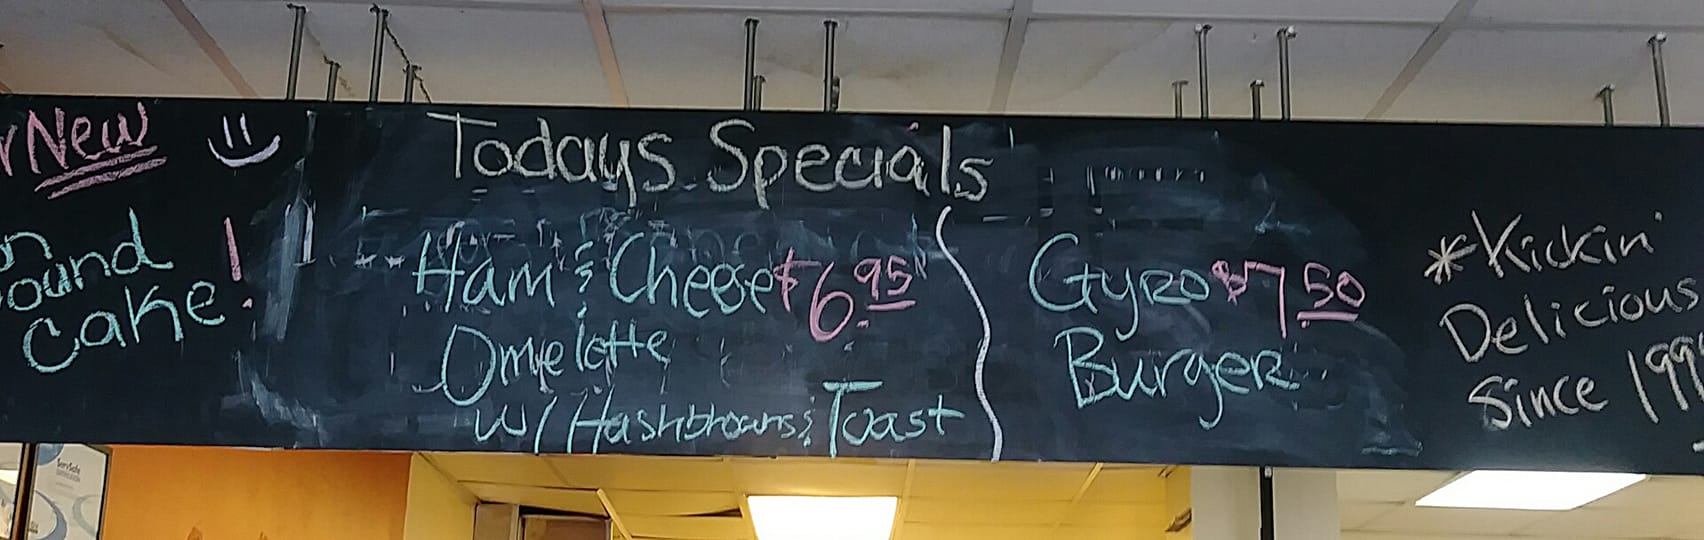 New
ound
cake!
Todays Specials
Ham & Cheese $6.95
Omelette
w/ Hashbrowns & Toast
Gyro $7.50
Burger
*Kickin'
Delicious
Since 199
ServSafe